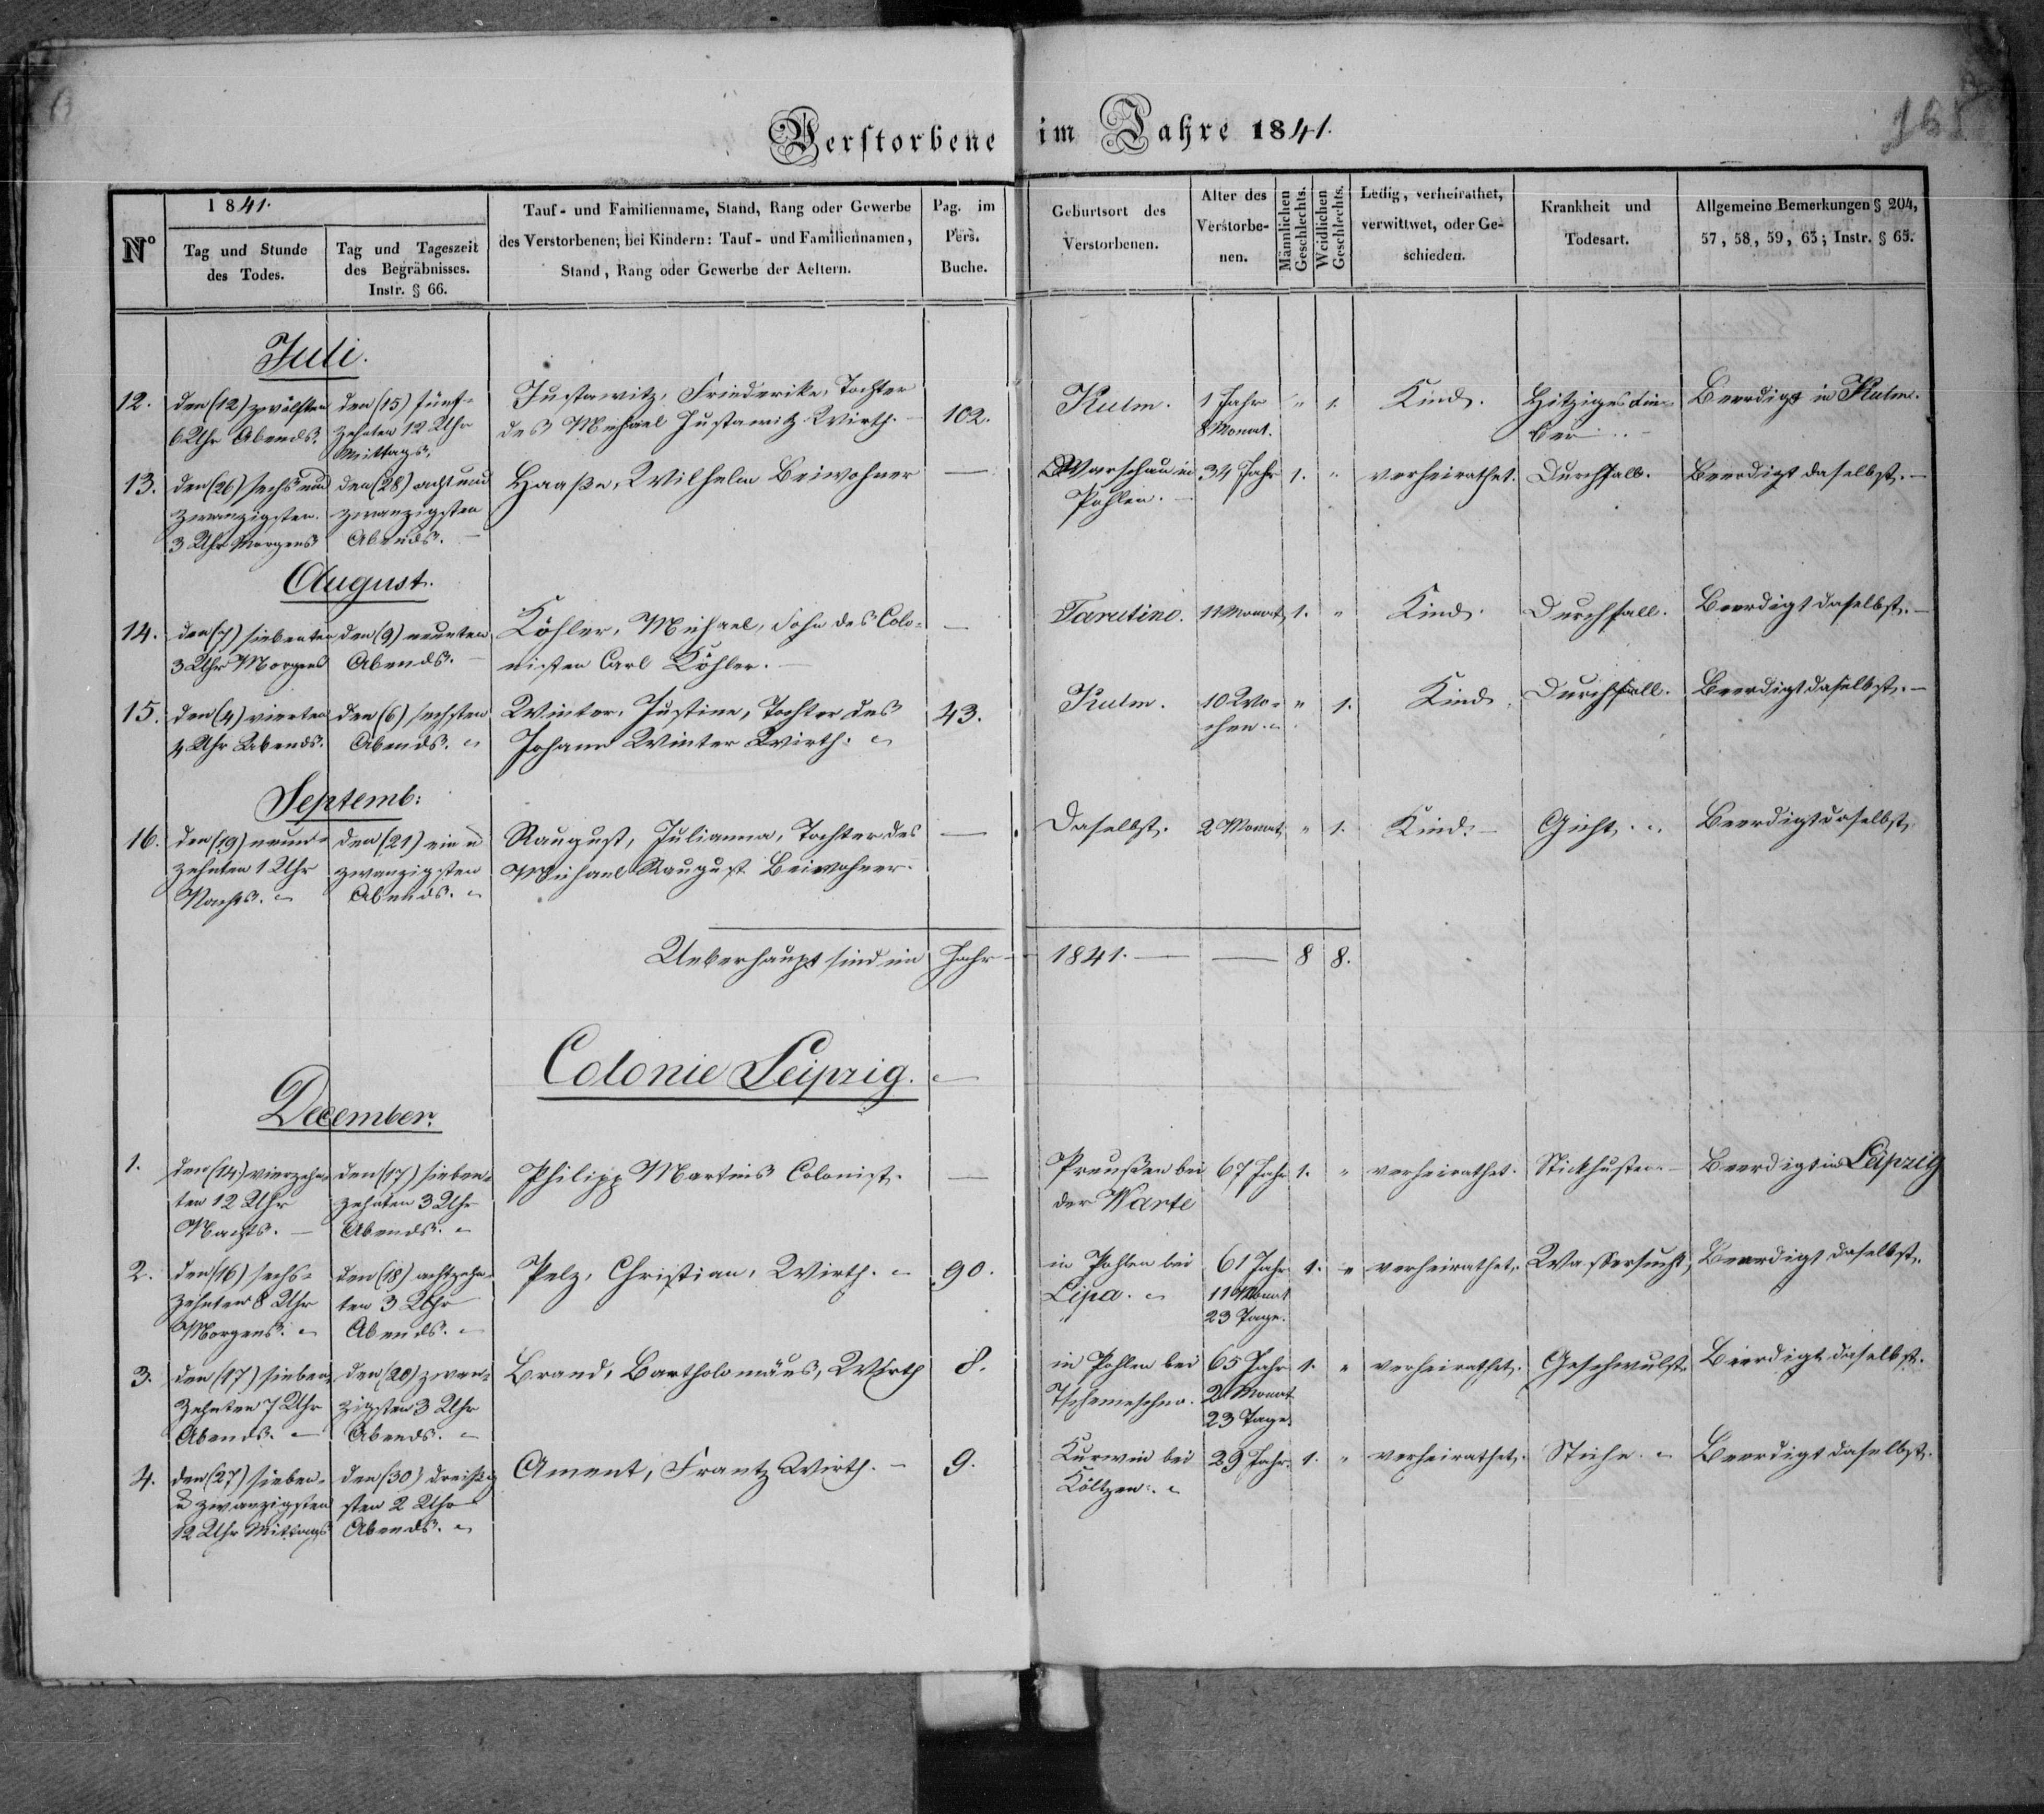 Verstorbene im Jahre 1841.
165
Nº
1841.
Tag und Stunde
des Todes.
Tag und Tageszeit
des Begräbnisses.
Instr. § 66.
Tauf- und Familienname, Stand, Rang oder Gewerbe
des Verstorbenen; bei Kindern: Tauf- und Familiennamen,
Stand, Rang oder Gewerbe der Aeltern.
Pag. im
Pers.
Buche.
Geburtsort des
Verstorbenen.
Alter des
Verstorbe-
nen.
Männlichen
Geschlechts.
Weiblichen
Geschlechts.
Ledig, verheirathet,
verwittwet, oder Ge-
schieden.
Krankheit und
Todesart.
Allgemeine Bemerkungen § 204,
57, 58, 59, 63; Instr. § 65.
Juli.
12.
den (12) zwölften
6 Uhr Abends.
den (15) fünf-
zehnten 12 Uhr
Mittags.
Justawitz, Friederike, Tochter
des Michael Justawitz Wirth. —
102.
Kulm.
1 Jahr
8 Monat.
" 1.
Kind.
Hitziges Fie-
ber. —
Beerdigt in Kulm.
13.
den (26) sechs und
zwanzigsten
3 Uhr Morgens
den (28) acht und
zwanzigsten
Abends. —
Haaße, Wilhelm Beiwohner
—
Warschau in
Pohlen. —
34 Jahr
1. "
verheirathet.
Durchfall.
Beerdigt daselbst. —
August.
14.
den (7) siebenten
3 Uhr Morgens
den (9) neunten
Abends. —
Köhler, Michael, Sohn des Colo-
nisten Carl Köhler. —
—
Tarutino.
11 Monat
1. "
Kind.
Durchfall.
Beerdigt daselbst. —
15.
den (4) vierten
4 Uhr Abends.
den (6) sechsten
Abends.
Winter, Justine, Tochter des
Johann Winter Wirth.
43.
Kulm.
10 Wo-
chen.
" 1.
Kind.
Durchfall.
Beerdigt daselbst. —
Septemb:
16.
den (19) neun-
zehnten 1 Uhr
Nachts.
den (21) ein u
zwanzigsten
Abends.
Raugust, Julianna, Tochter des
Michael Raugust Beiwohner.
—
Daselbst.
2 Monat
" 1.
Kind. —
Gicht.
Beerdigt daselbst
Ueberhaupt sind im Jahr — 1841. — — 8 8.
Colonie Leipzig.
December.
1.
den (14) vierzehn-
ten 12 Uhr
Nachts. —
den (17) sieben-
zehnten 3 Uhr
Abends.
Philipp Martins Colonist.
—
Preußen bei
der Warte
67 Jahr
1. "
verheirathet.
Stickhusten —
Beerdigt in Leipzig
2.
den (16) sechs-
zehnten 8 Uhr
Morgens.
den (18) achtzehn-
ten 3 Uhr
Abends.
Pelz, Christian, Wirth.
90.
in Pohlen bei
Lipa.
61 Jahr
11 Monat
23 Tage.
1. "
verheirathet.
Wassersucht,
Beerdigt daselbst.
3.
den (17) sieben-
zehnten 7 Uhr
Abends. —
den (20) zwan-
zigsten 3 Uhr
Abends.
Brand, Bartholomäus, Wirth
8.
in Pohlen bei
Tschemeschno.
65 Jahr
2 Monat
23 Tage.
1. "
verheirathet.
Geschwulst.
Beerdigt daselbst.
4.
den (27) sieben-
u zwanzigsten
12 Uhr Mittags
den (30) dreißig
sten 2 Uhr
Abends.
Ament, Frantz Wirth. —
9.
Kurwin bei
Költzen.
29 Jahr.
1. "
verheirathet.
Stiche.
Beerdigt daselbst.